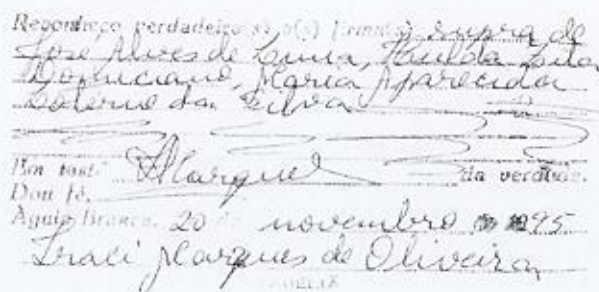 Reconheço verdadeira(s) a(s) firma(s) supra de
José Alves de Lima, Paulo da
Domiciano, Maria Aparecida
Salerno da Silva
Em test.º Marques da verdade.
Dou fé.
Aguia Branca, 20 de novembro 1995
Iraci Marques de Oliveira